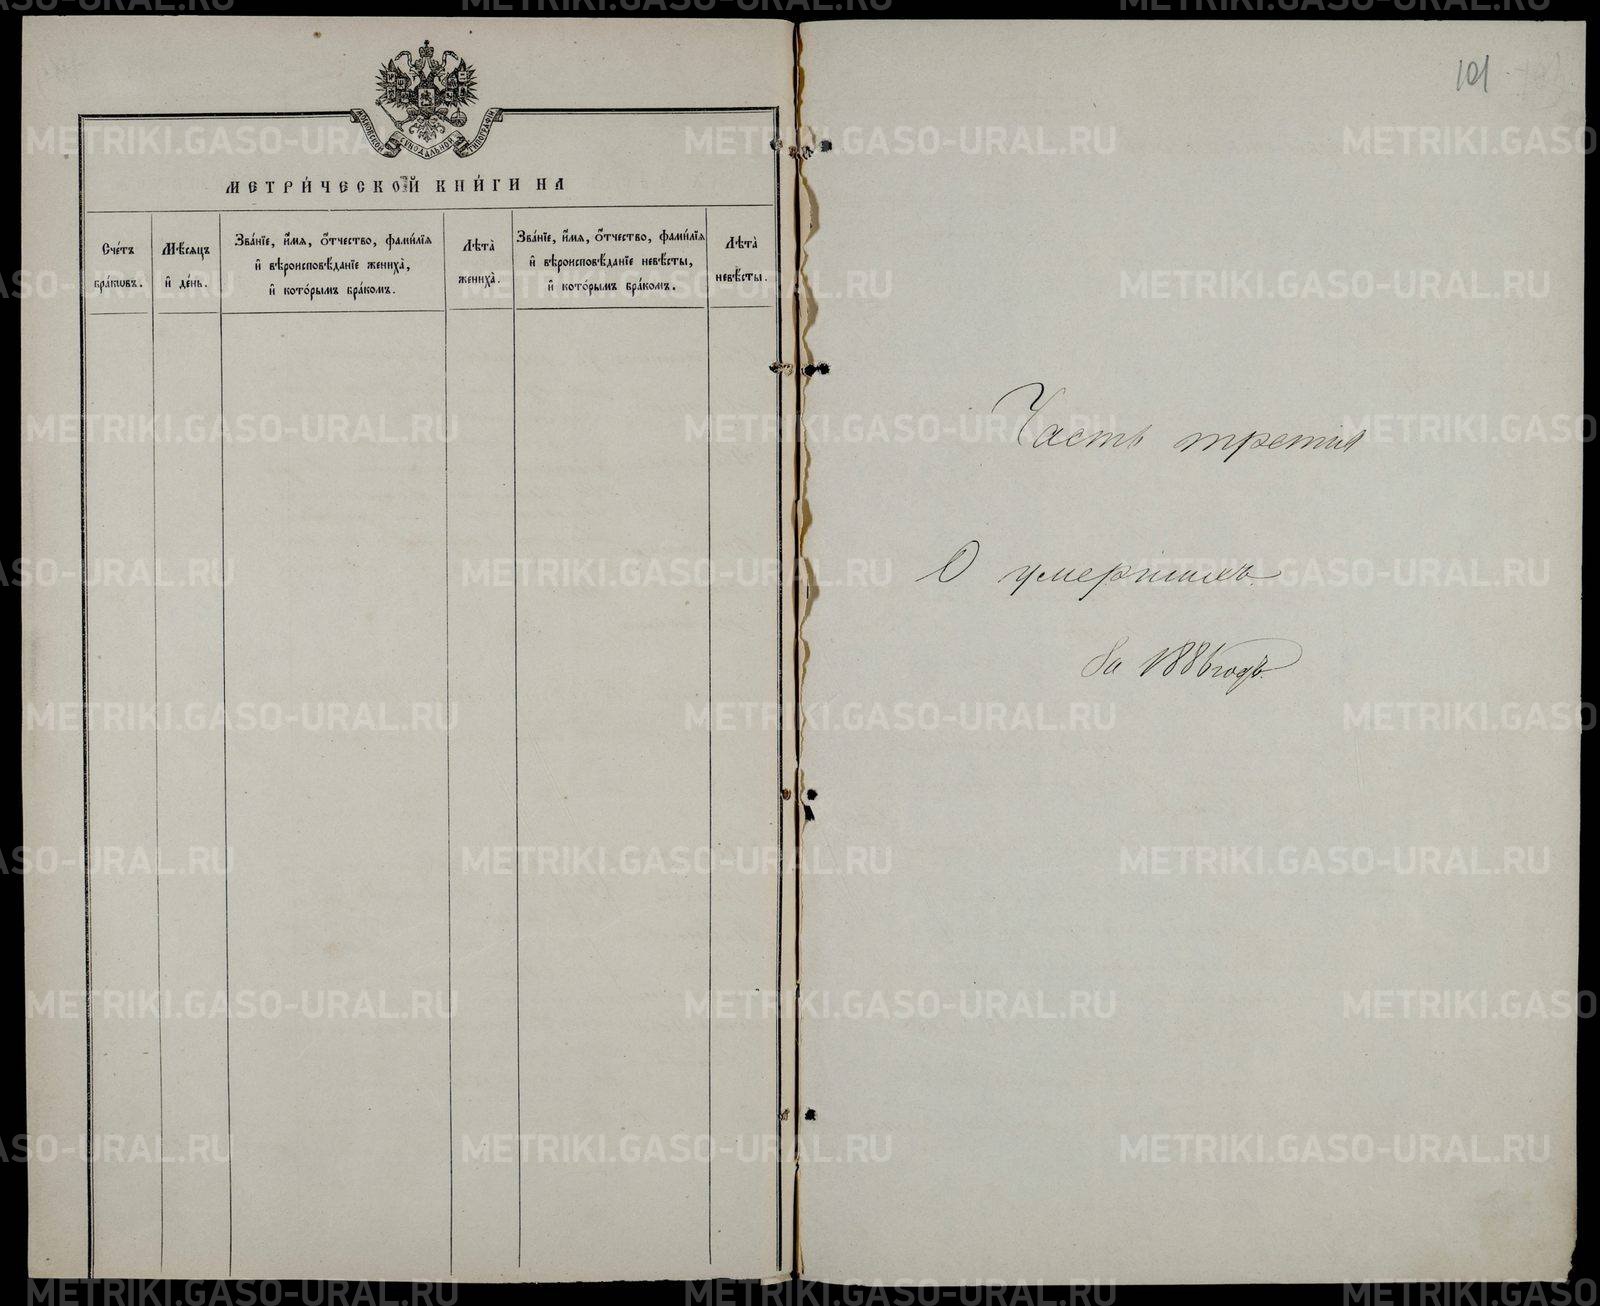 МОСКОВСКОЙ СѴНОДАЛЬНОЙ ТИПОГРАФІИ
МЕТРИ́ЧЕСКОЙ КНИ́ГИ НА
Сче́тъ
бра́кѡвъ.
Мѣ́сѧцъ
и҆ де́нь.
Зва́нїе, и҆́мѧ, ѻ҆́тчество, фами́лїѧ
и҆ вѣроисповѣ́данїе жениха̀,
и҆ кото́рымъ бра́комъ.
Лѣта̀
жениха̀.
Зва́нїе, и҆́мѧ, ѻ҆́тчество, фами́лїѧ
и҆ вѣроисповѣ́данїе невѣ́сты,
и҆ кото́рымъ бра́комъ.
Лѣта̀
невѣ́сты.
101
Часть третія
О умершихъ.
За 1886 годъ.
METRIKI.GASO-URAL.RU